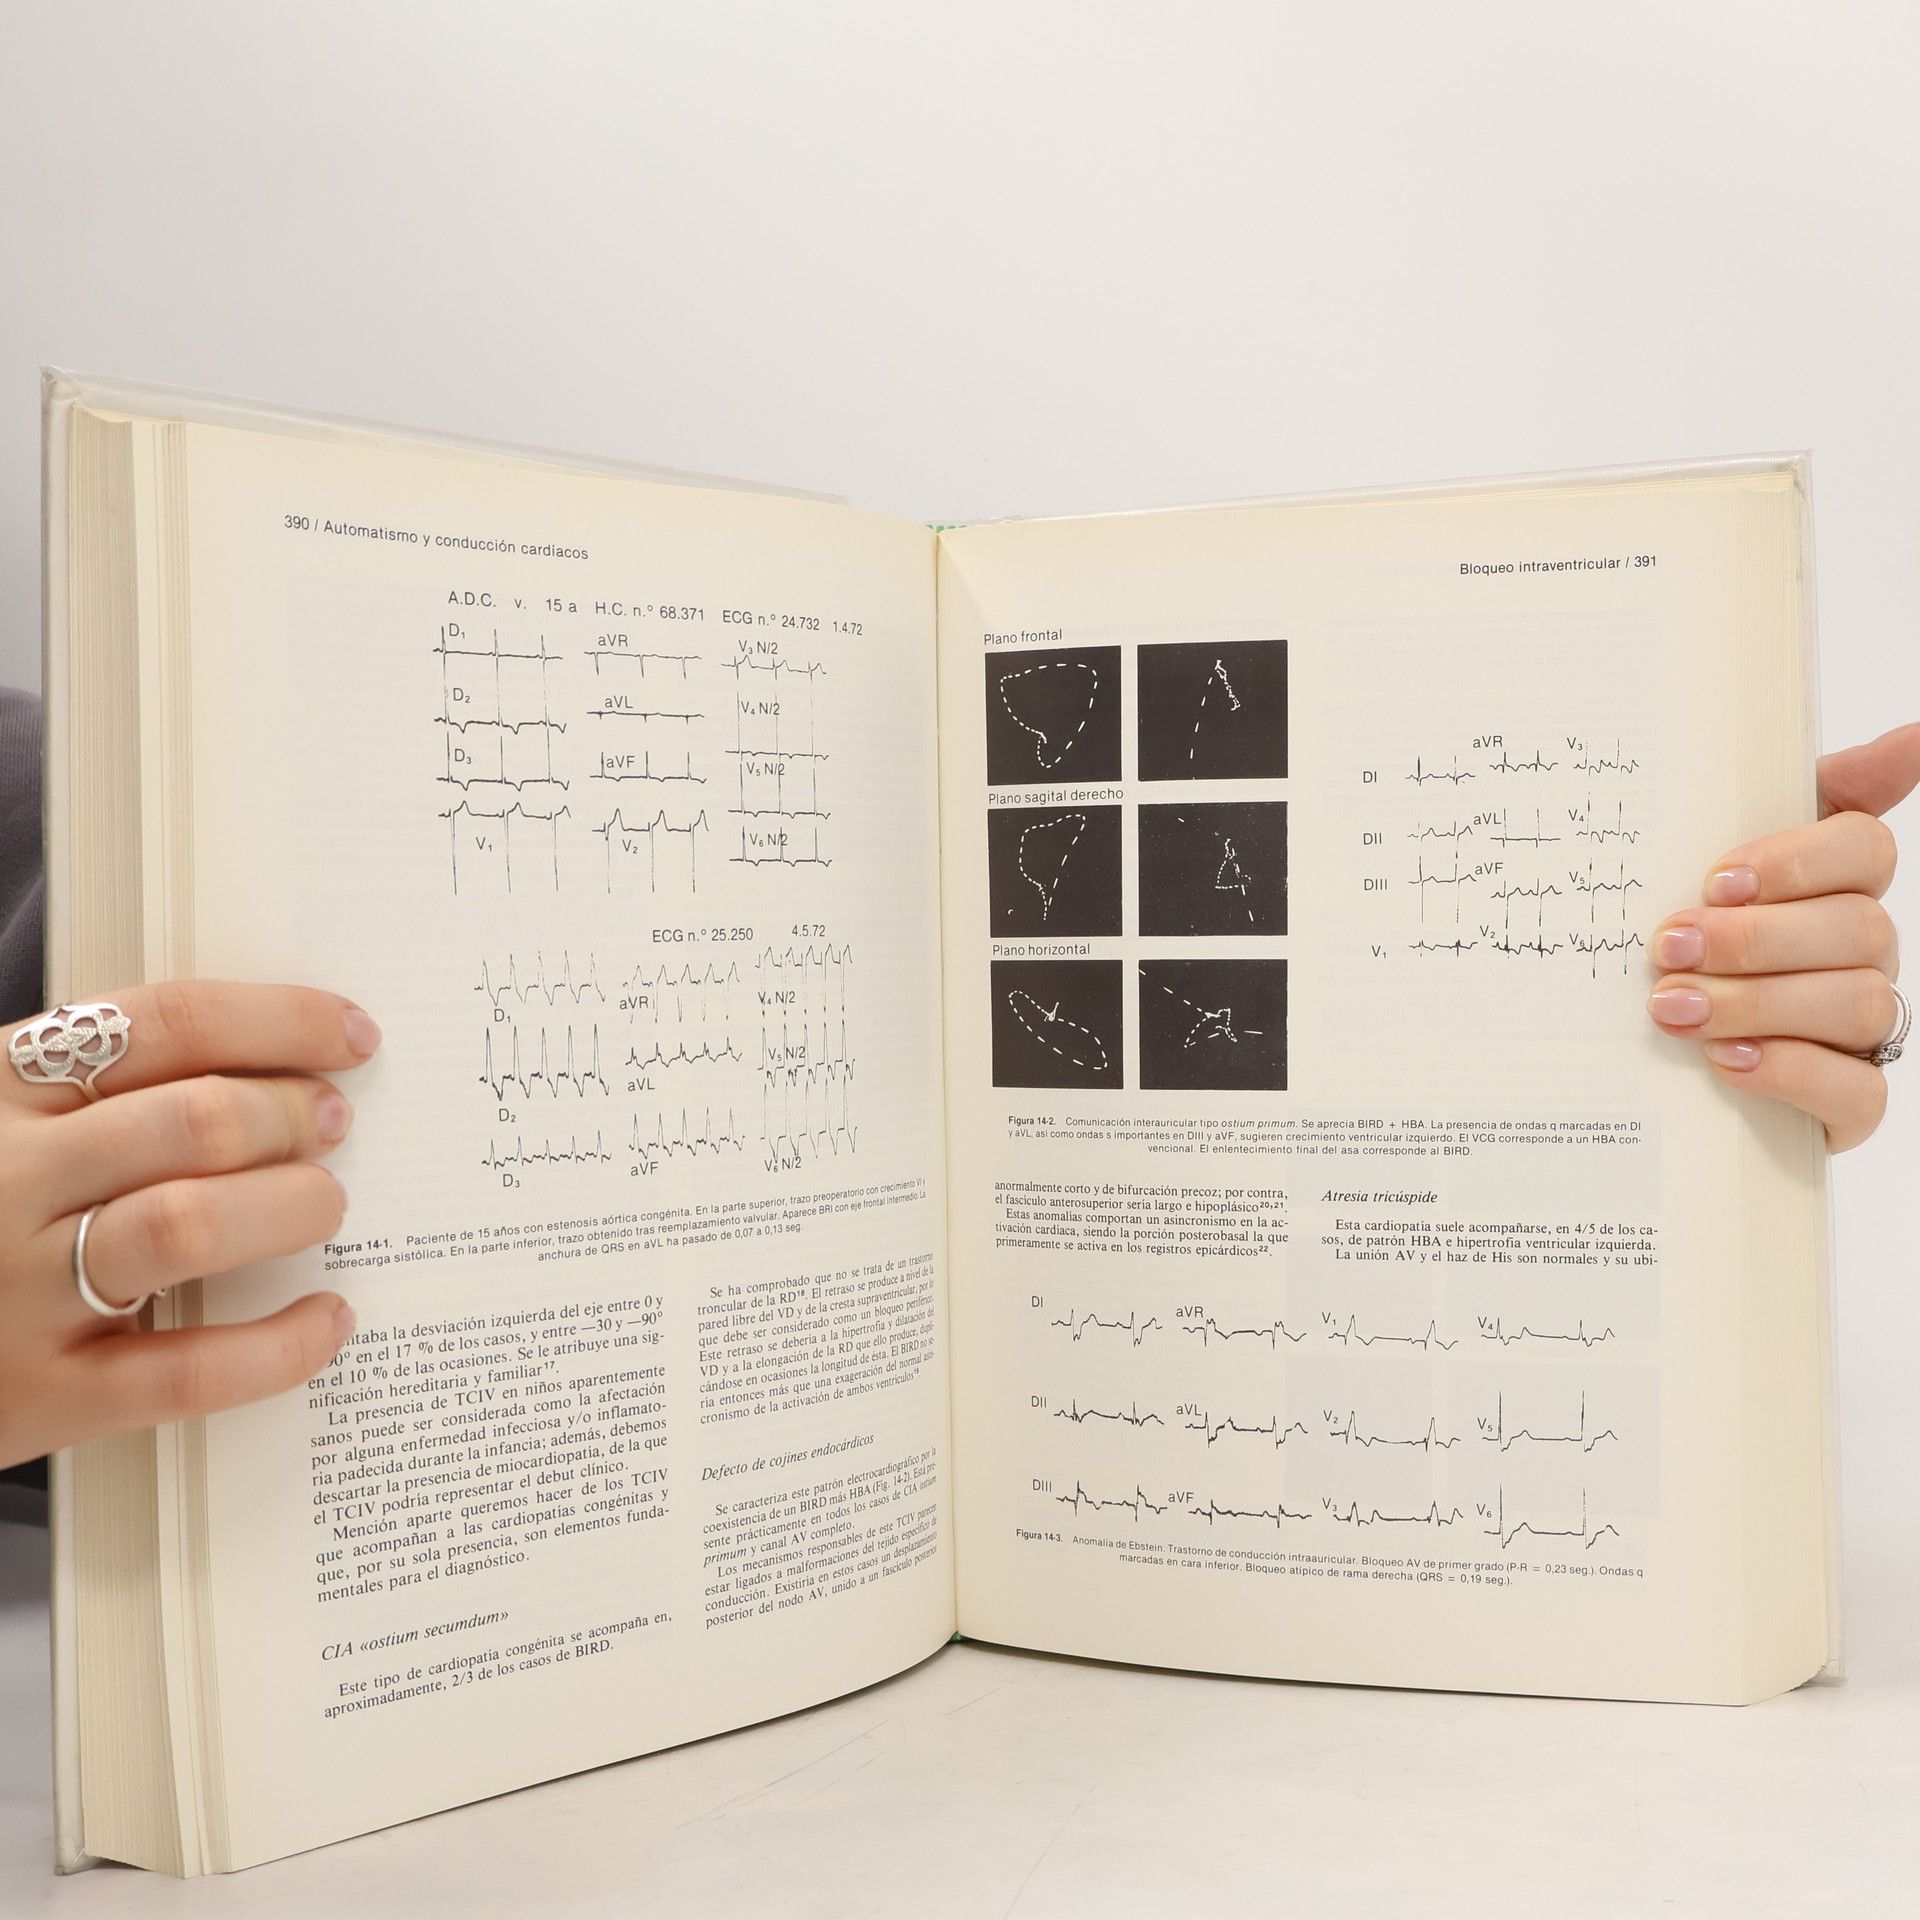 390 / Automatismo y conducción cardíacos
A.D.C. v. 15 a H.C. n.º 68.371 ECG n.º 24.732 1.4.72
D1 aVR V3 N/2
D2 aVL V4 N/2
D3 aVF V5 N/2
V1 V2 V6 N/2
ECG n.º 25.250 4.5.72
D1 aVR V4 N/2
D2 aVL V5 N/2
D3 aVF V6 N/2
Figura 14-1. Paciente de 15 años con estenosis aórtica congénita. En la parte superior, trazo preoperatorio con crecimiento VI y
sobrecarga sistólica. En la parte inferior, trazo obtenido tras reemplazamiento valvular. Aparece BRI con eje frontal intermedio. La
anchura de QRS en aVL ha pasado de 0,07 a 0,13 seg.
la desviación izquierda del eje entre 0 y
en el 17 % de los casos, y entre —30 y —90°
en el 10 % de las ocasiones. Se le atribuye una sig-
nificación hereditaria y familiar17.
La presencia de TCIV en niños aparentemente
sanos puede ser considerada como la afectación
por alguna enfermedad infecciosa y/o inflamato-
ria padecida durante la infancia; además, debemos
descartar la presencia de miocardiopatía, de la que
el TCIV podría representar el debut clínico.
Mención aparte queremos hacer de los TCIV
que acompañan a las cardiopatías congénitas y
que, por su sola presencia, son elementos funda-
mentales para el diagnóstico.
CIA «ostium secumdum»
Este tipo de cardiopatía congénita se acompaña en,
aproximadamente, 2/3 de los casos de BIRD.
Se ha comprobado que no se trata de un trastorno
troncular de la RD18. El retraso se produce a nivel de la
pared libre del VD y de la cresta supraventricular, por lo
que debe ser considerado como un bloqueo periférico.
Este retraso se debería a la hipertrofia y dilatación del
VD y a la elongación de la RD que ello produce, dupli-
cándose en ocasiones la longitud de ésta. El BIRD no se-
ría entonces más que una exageración del normal asin-
cronismo de la activación de ambos ventrículos19.
Defecto de cojines endocárdicos
Se caracteriza este patrón electrocardiográfico por la
coexistencia de un BIRD más HBA (Fig. 14-2). Está pre-
sente prácticamente en todos los casos de CIA ostium
primum y canal AV completo.
Los mecanismos responsables de este TCIV parecen
estar ligados a malformaciones del tejido específico de
conducción. Existiría en estos casos un desplazamiento
posterior del nodo AV, unido a un fascículo posterior
Bloqueo intraventricular / 391
Plano frontal
Plano sagital derecho
Plano horizontal
DI aVR V3
DII aVL V4
DIII aVF V5
V1 V2 V6
Figura 14-2. Comunicación interauricular tipo ostium primum. Se aprecia BIRD + HBA. La presencia de ondas q marcadas en DI
y aVL, así como ondas s importantes en DIII y aVF, sugieren crecimiento ventricular izquierdo. El VCG corresponde a un HBA con-
vencional. El enlentecimiento final del asa corresponde al BIRD.
anormalmente corto y de bifurcación precoz; por contra,
el fascículo anterosuperior sería largo e hipoplásico20,21.
Estas anomalías comportan un asincronismo en la ac-
tivación cardíaca, siendo la porción posterobasal la que
primeramente se activa en los registros epicárdicos22.
Atresia tricúspide
Esta cardiopatía suele acompañarse, en 4/5 de los ca-
sos, de patrón HBA e hipertrofia ventricular izquierda.
La unión AV y el haz de His son normales y su ubi-
DI aVR V1 V4
DII aVL V2 V5
DIII aVF V3 V6
Figura 14-3. Anomalía de Ebstein. Trastorno de conducción intraauricular. Bloqueo AV de primer grado (P-R = 0,23 seg.). Ondas q
marcadas en cara inferior. Bloqueo atípico de rama derecha (QRS = 0,19 seg.).